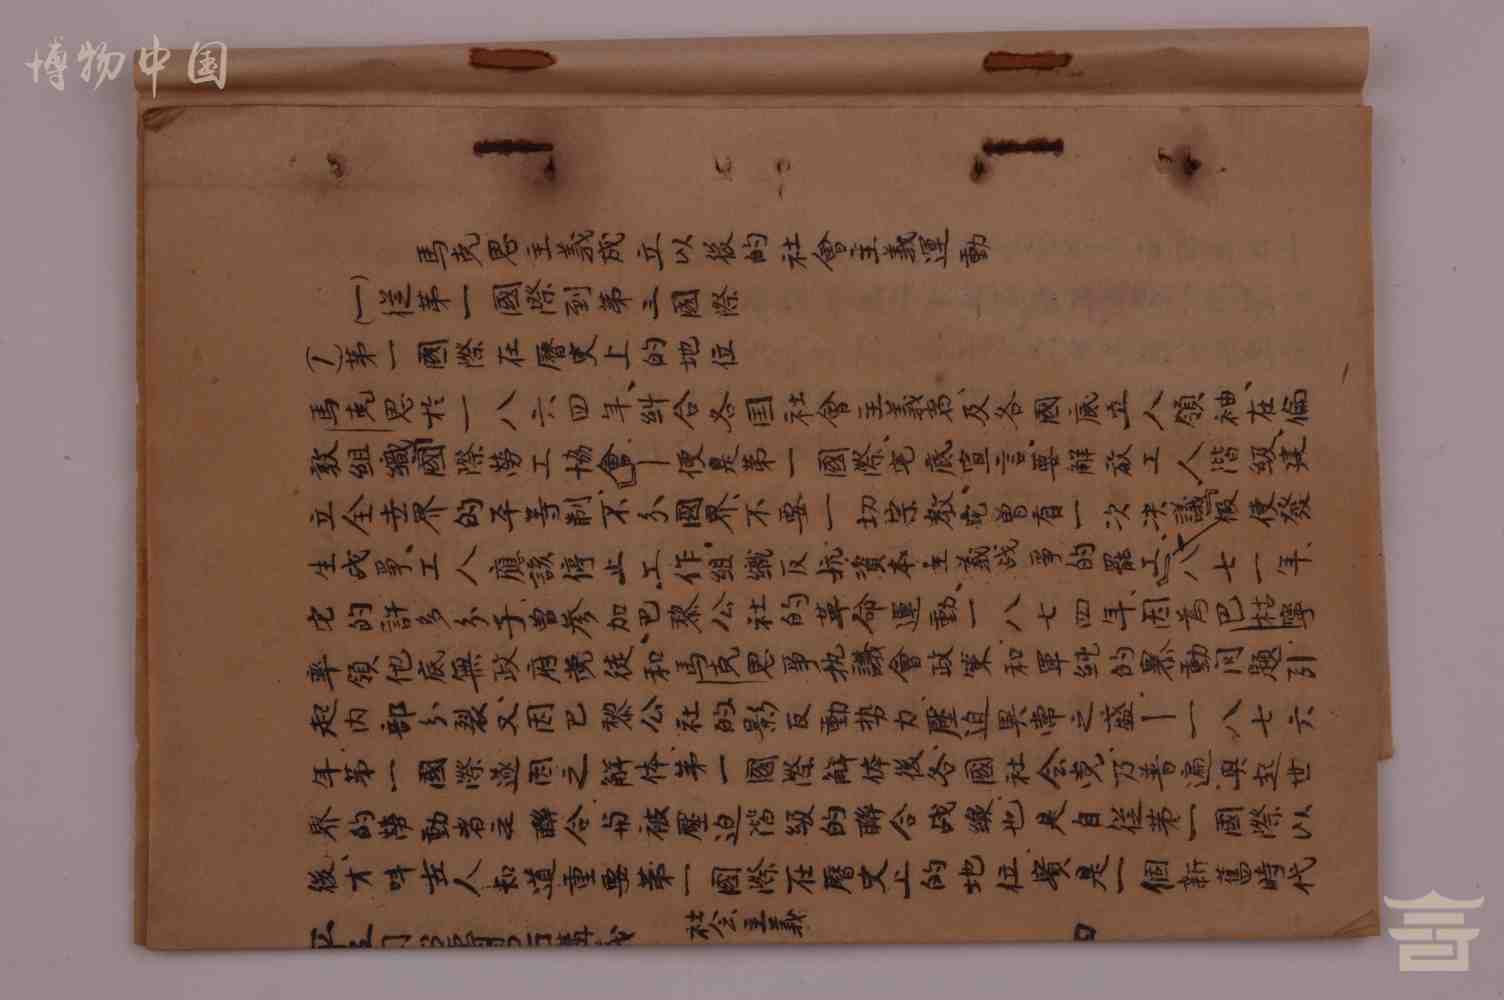 博物中国
馬克思主義成立以後的社會主義運動
(一)從第一國際到第三國際
(1)第一國際在曆史上的地位
馬克思於一八六四年、糾合各国社會主義者、及各國底工人領袖、在倫
敦組織國際勞工協會—便是第一國際、宅底宣言、要解放工人階級、建
立全世界的平等制、不分國界、不要一切宗教、宅曾有一次决議、假使發
生战爭、工人應該停止工作、組織反抗資本主義战爭的罷工、一八七一年、
宅的許多分子、曾參加巴黎公社的革命運動、一八七四年、因為巴枯寧
率領他底無政府党徒、和馬克思爭执議會政策和單純的暴動问題、引
起内部分裂、又因巴黎公社的影反動势力壓迫異常之盛—一八七六
年第一國際遂因之解体、第一國際解体後、各國社会党乃普遍興起、世
界的勞動者之聯合、与被壓迫階級的聯合战線、也是自從第一國際以
後、才呌世人知道重要、第一國際在曆史上的地位、實是一個新舊時代
社会主義